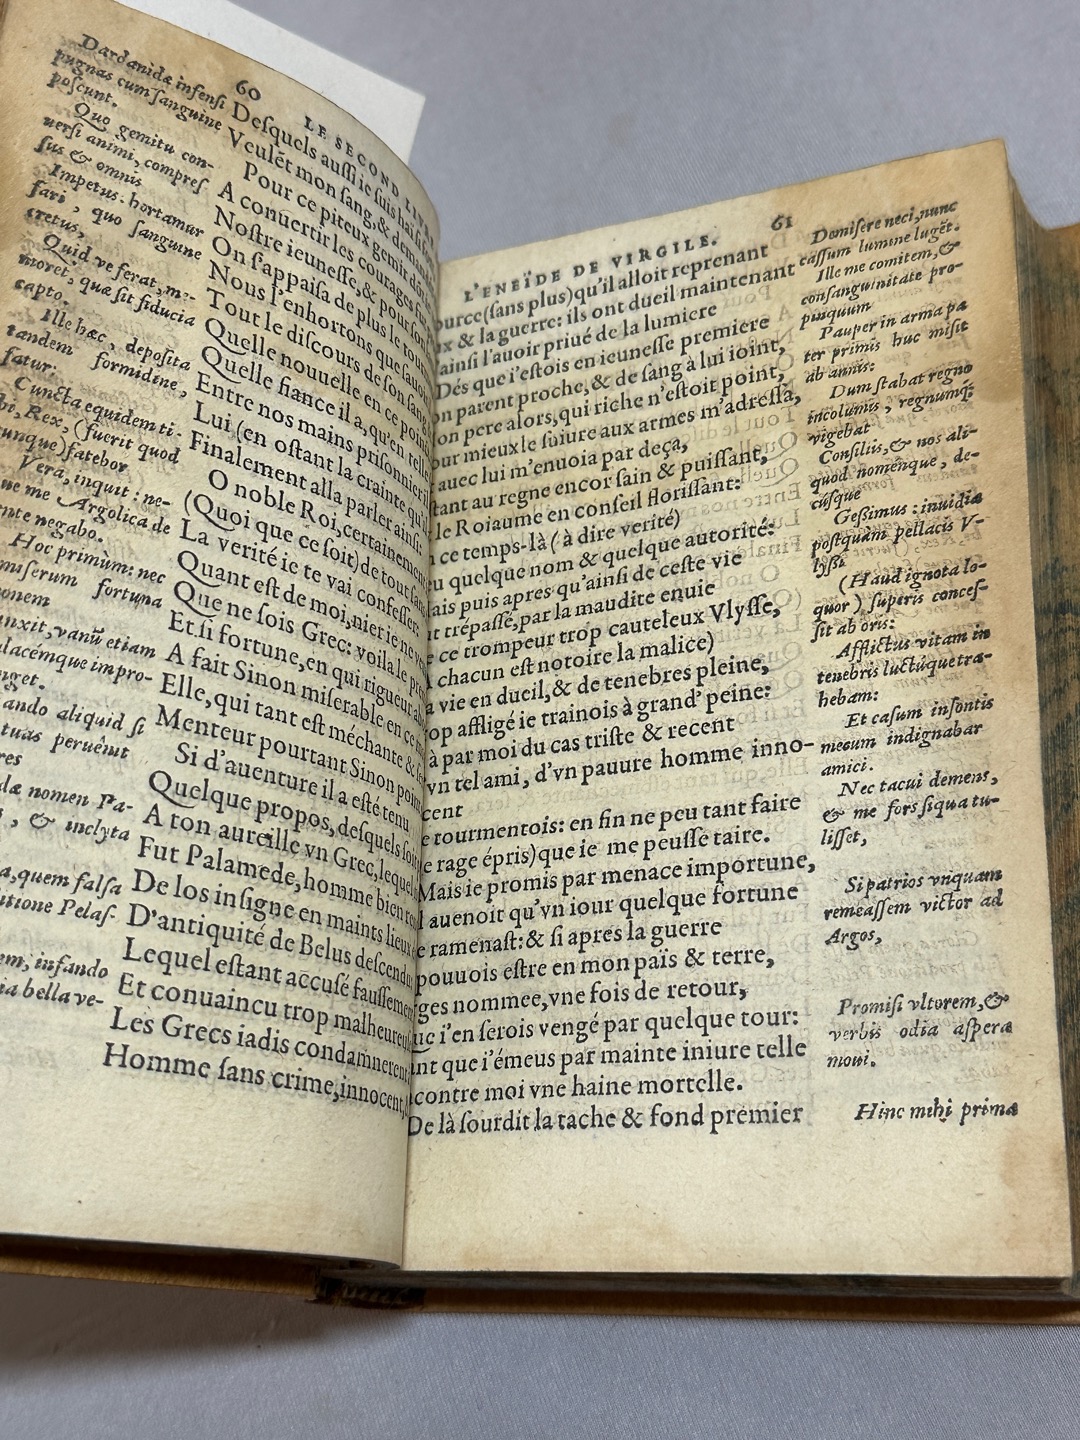 60
LE SECOND
Dardanidæ infensi
pugnas cum sanguine
poscunt.
Quo gemitu con-
uersi animi, compres
sus & omnis
Impetus. hortamur
fari, quo sanguine
cretus,
Quid ve ferat, me-
moret, quæ sit fiducia
capto.
Ille hæc, deposita
tandem formidine,
fatur:
Cuncta equidem ti-
bi, Rex, (fuerit quod
cunque) fatebor
Vera, inquit: ne-
que me Argolica de
negabo.
Hoc primùm: nec
miserum fortuna
etiam
impro-
aliquid si
tuas peruênit
nomen Pa-
, & inclyta
quem falsa
Pelas-
infando
bella ve-
Desquels aussi ie suis haï
Veulẽt mon sang, & demand
Pour ce piteux gemit, dõt
A conuertir les courages fut
Nostre ieunesse, & pour son
On s'appaisa de plus le tour
Nous l'enhortons que sauoi
Tout le discours de son sang
Quelle nouuelle en ce point
Quelle fiance il a, qu'en telle
Entre nos mains prisonnier il
Lui (en ostant la crainte qu'il
Finalement alla parler ainsi:
O noble Roi, certainement
(Quoi que ce soit) de tout
La verité ie te vai confesser:
Quant est de moi, nier ie ne
Que ne sois Grec: voila le pre
Et si fortune, en qui rigueur
A fait Sinon miserable en ce
Elle, qui tant est méchante &
Menteur pourtant Sinon point
Si d'auenture il a esté tenu
Quelque propos, desquels soit
A ton aureille vn Grec, lequel
Fut Palamede, homme bien
De los insigne en maints lieux
D'antiquité de Belus descendu
Lequel estant accusé faussement
Et conuaincu trop malheureu
Les Grecs iadis condamnerent
Homme sans crime, innocent,
L'ENEÏDE DE VIRGILE. 61
ource (sans plus) qu'il alloit reprenant
& la guerre: ils ont dueil maintenant
ainsi l'auoir priué de la lumiere
Dés que i'estois en ieunesse premiere
on parent proche, & de sang à lui ioint,
on pere alors, qui riche n'estoit point,
our mieux le suiure aux armes m'adressa,
auec lui m'enuoia par deça,
tant au regne encor sain & puissant,
le Roiaume en conseil florissant:
ce temps-là (à dire verité)
u quelque nom & quelque autorité:
ais puis apres qu'ainsi de ceste vie
t trépassé, par la maudite enuie
e ce trompeur trop cauteleux Vlysse,
chacun est notoire la malice)
a vie en dueil, & de tenebres pleine,
op affligé ie trainois à grand' peine:
à par moi du cas triste & recent
vn tel ami, d'vn pauure homme inno-
cent
e tourmentois: en fin ne peu tant faire
e rage épris) que ie me peusse taire.
Mais ie promis par menace importune,
auenoit qu'vn iour quelque fortune
e ramenast: & si apres la guerre
pouuois estre en mon païs & terre,
ges nommee, vne fois de retour,
ue i'en serois vengé par quelque tour:
nt que i'émeus par mainte iniure telle
contre moi vne haine mortelle.
De là sourdit la tache & fond premier
Demisere neci, nunc
cassum lumine lugẽt.
Ille me comitem, &
consanguinitate pro-
pinquum
Pauper in arma pa
ter primis huc misit
ab annis:
Dum stabat regno
incolumis, regnumq́;
vigebat
Consiliis, & nos ali-
quod noménque, de-
cúsque
Gessimus: inuidia
postquam pellacis V-
lyssi
(Haud ignota lo-
quor) superis conces-
sit ab oris:
Afflictus vitam in
tenebris luctúque tra-
hebam:
Et casum insontis
mecum indignabar
amici.
Nec tacui demens,
& me fors siqua tu-
lisset,
Si patrios vnquam
remeassem victor ad
Argos,
Promisi vltorem, &
verbis odia aspera
moui.
Hinc mihi prima